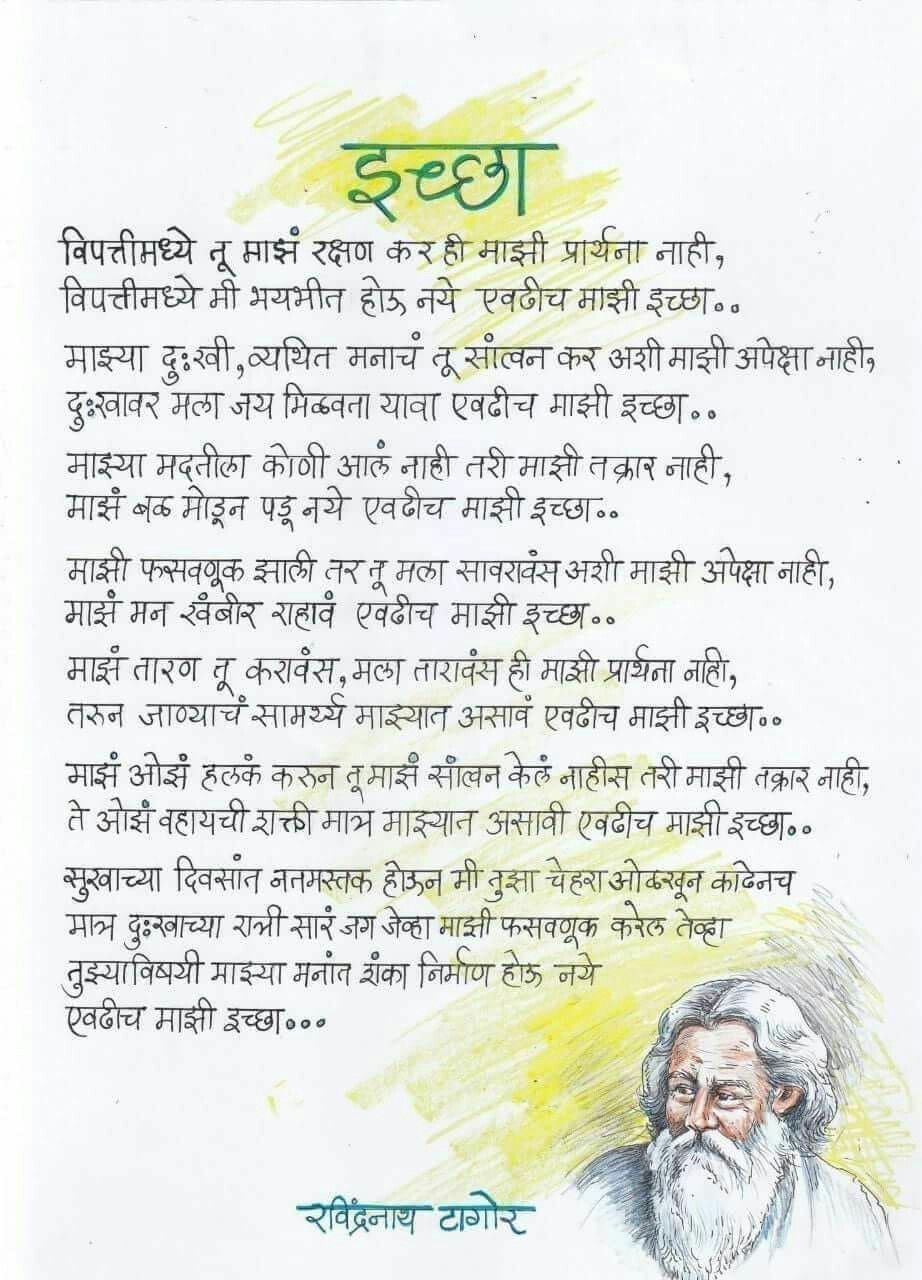 इच्छा
विपत्तीमध्ये तू माझं रक्षण कर ही माझी प्रार्थना नाही,
विपत्तीमध्ये मी भयभीत होऊ नये एवढीच माझी इच्छा..
माझ्या दुःखी, व्यथित मनाचं तू सांत्वन कर अशी माझी अपेक्षा नाही,
दुःखावर मला जय मिळवता यावा एवढीच माझी इच्छा..
माझ्या मदतीला कोणी आलं नाही तरी माझी तक्रार नाही,
माझं बळ मोडून पडू नये एवढीच माझी इच्छा..
माझी फसवणूक झाली तर तू मला सावरावंस अशी माझी अपेक्षा नाही,
माझं मन खंबीर राहावं एवढीच माझी इच्छा..
माझं तारण तू करावंस, मला तारावंस ही माझी प्रार्थना नाही,
तरुन जाण्याचं सामर्थ्य माझ्यात असावं एवढीच माझी इच्छा..
माझं ओझं हलकं करुन तू माझं सांत्वन केलं नाहीस तरी माझी तक्रार नाही,
ते ओझं वहायची शक्ती मात्र माझ्यात असावी एवढीच माझी इच्छा..
सुखाच्या दिवसांत नतमस्तक होऊन मी तुझा चेहरा ओळखून काढेनच
मात्र दुःखाच्या रात्री सारं जग जेव्हा माझी फसवणूक करेल तेव्हा
तुझ्याविषयी माझ्या मनांत शंका निर्माण होऊ नये
एवढीच माझी इच्छा...
रविंद्रनाथ टागोर